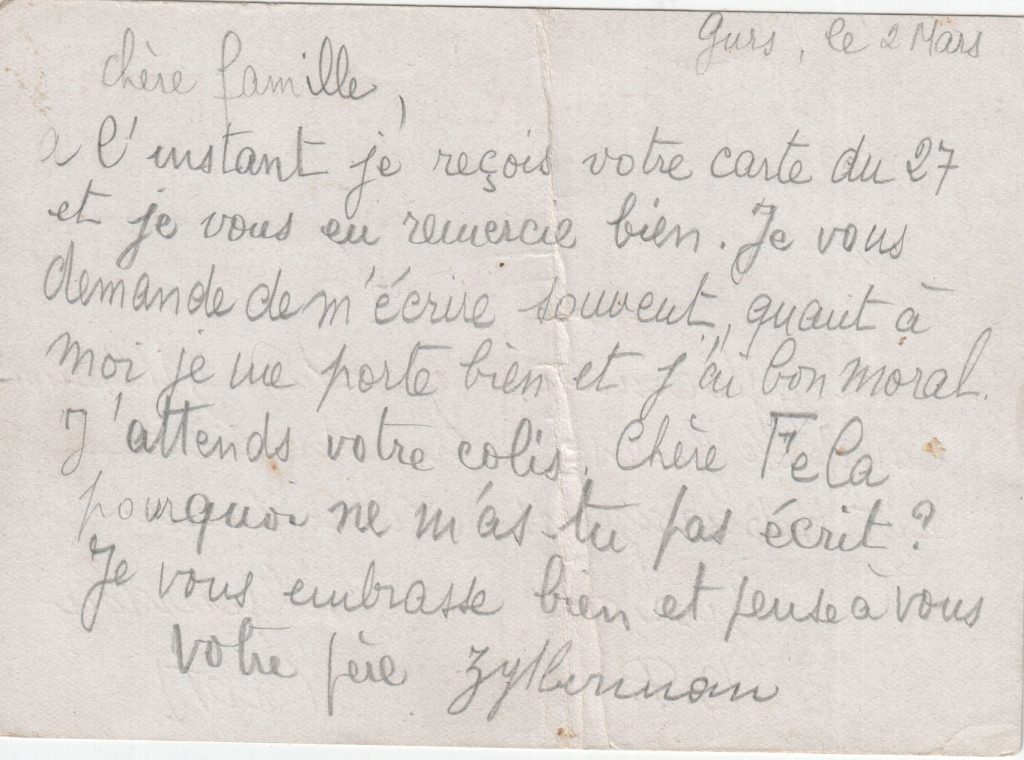 Gurs, le 2 Mars
chère famille,
a l'instant je reçois votre carte du 27
et je vous en remercie bien. Je vous
demande de m'écrire souvent, quant à
moi je me porte bien et j'ai bon moral.
J'attends votre colis. Chère Fela
pourquoi ne m'as tu pas écrit?
Je vous embrasse bien et pense à vous
Votre père Zylberman